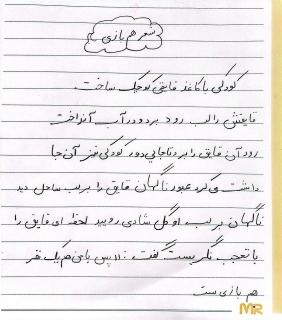 شعر هم بازی
کودکی با کاغذ قایقی کوچک ساخت
قایقش را لب رود برد و در آب انداخت
رود آن قایق را برد تا جایی دور کودکی نیز آن جا
داشت می کرد عبور ناگهان قایق را بر لب ساحل دید
ناگهان بر لب او گل شادی رویید لحظه ای قایق را
با تعجب نگریست گفت: پس با من هم یک نفر
هم بازی ست
MR